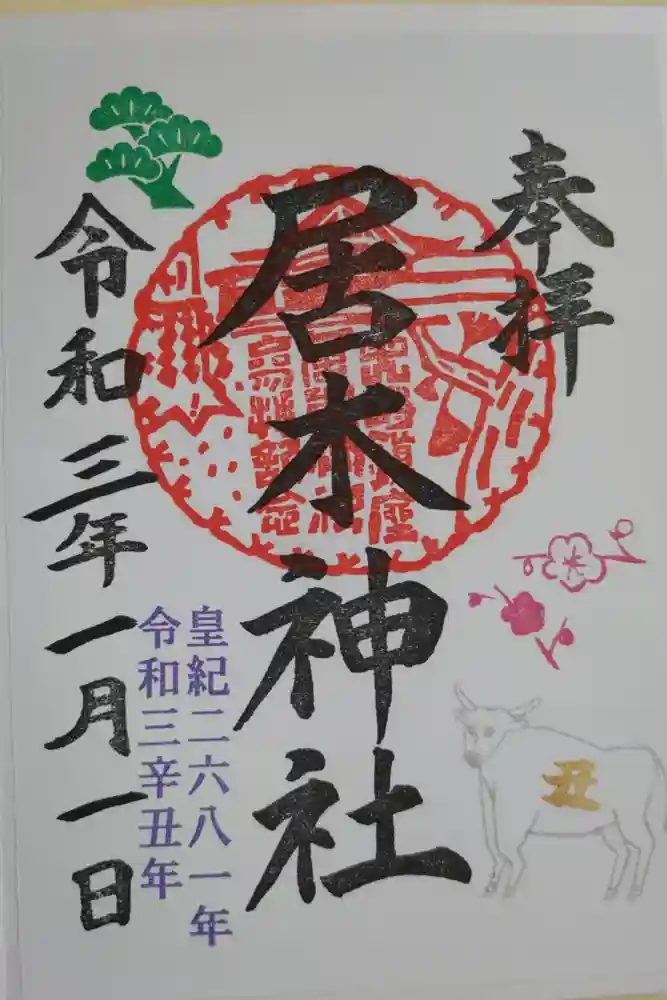 奉拝
居木神社
皇紀二六八一年
令和三辛丑年
令和三年一月一日
丑